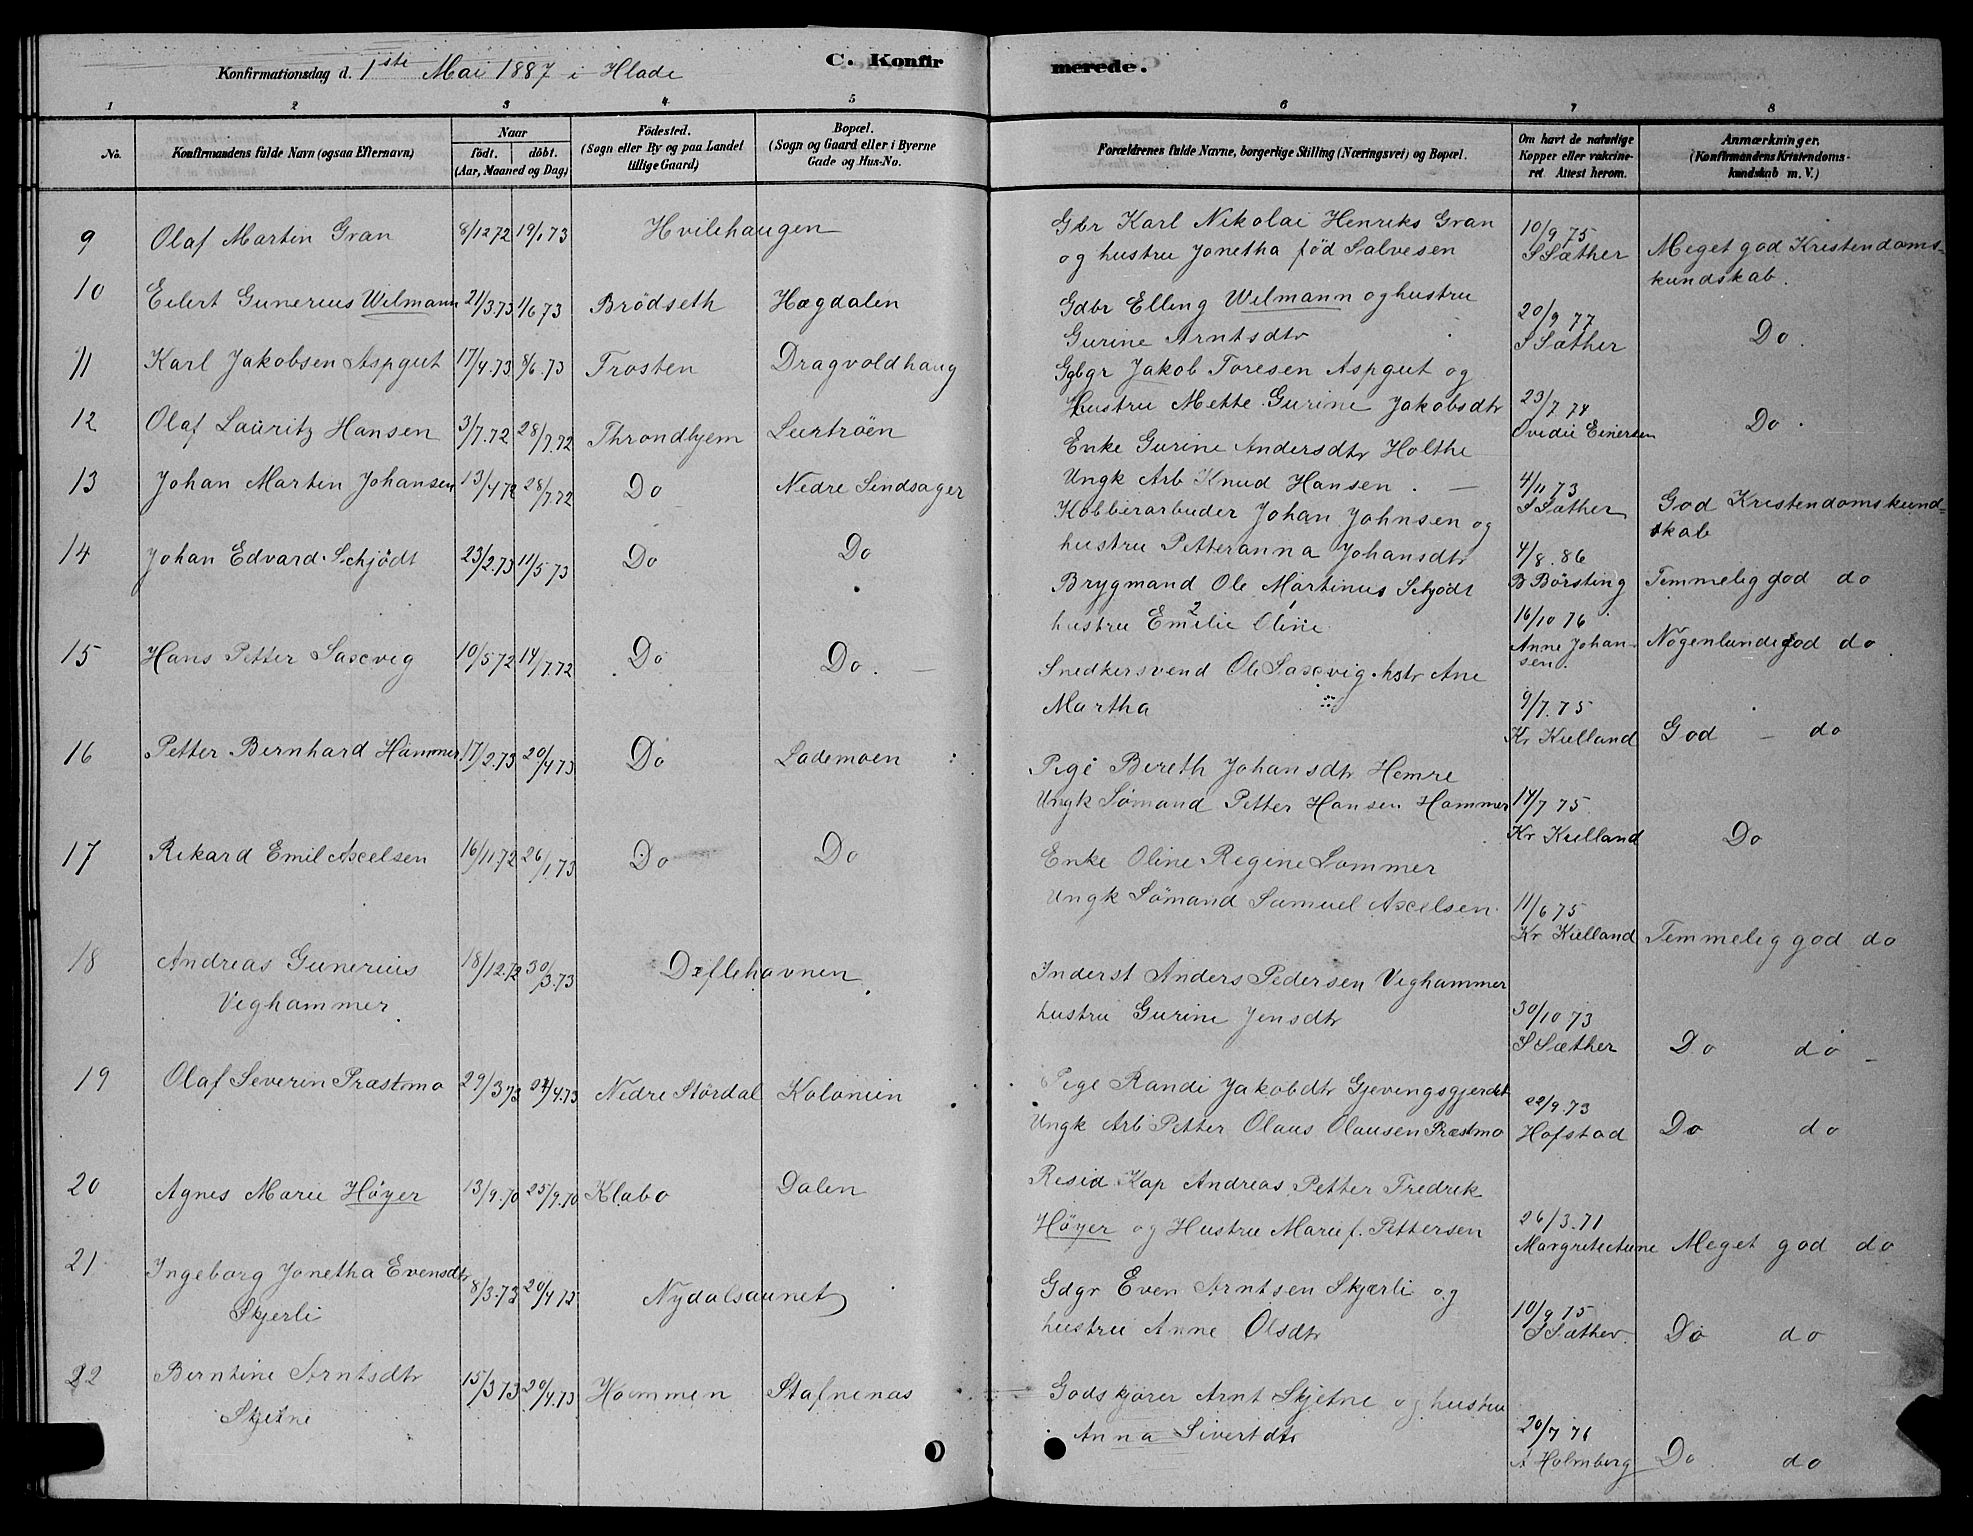 Konfirmationsdag d. 1ste Mai 1887 i Hlade
C. Konfir
merede.
1 2 3 4 5 6 7 8
No.
Konfirmandens fulde Navn (ogsaa Efternavn)
Naar
født. døbt.
(Aar, Maaned og Dag)
Födested.
(Sogn eller By og paa Landet
tillige Gaard)
Bopæl.
(Sogn og Gaard eller i Byerne
Gade og Hus-No.
Forældrenes fulde Navne, borgerlige Stilling (Næringsvei) og Bopæl.
Om havt de naturlige
Kopper eller vakcine-
ret. Attest herom.
Anmærkninger.
(Konfirmandens Kristendoms-
kundskab m. V.)
9 Olaf Martin Gran 8/12 72 19/1 73 Hvilehaugen
Gbr Karl Nikolai Henriks Gran
og hustru Jonetha född Salvesen
10/9 75
S Sæther
Meget god Kristendoms-
kundskab.
10 Eilert Gunerius Wilmann 21/3.73 1/6 73 Brödseth Hægdalen
Gdbr Elling Wilmann og hustru
Gurine Arntsdtr
20/9 77
S Sæther
Do.
11 Karl Jakobsen Aspgut 17/4.73 8/6.73 Frosten Dragvoldhaug
Jakob Toresen Aspgut og
Hustru Mette Gurine Jakobsdtr
23/7.74
Ovedie Einersen
Do.
12 Olaf Lauritz Hansen 3/7.72 28/7.72 Throndhjem Leertröen
Enke Gurine Andersdtr Holthe
Ungk Arb Knud Hansen.
4/11 73
S Sæther
God Kristendomskund-
skab
13 Johan Martin Johansen 13/4 72 28/7.72 Do Nedre Lindsager
Kobberarbeider Johan Johnsen og
hustru Petteranna Johansdtr
4/8.86
B Börsting
Temmelig god do
14 Johan Edvard Schjödt 23/2.73 11/5 73 Do Do
Brygmand Ole Martinus Schjödt
hustru Emilie Oline
16/10 76
Anne Johan-
sen.
Nogenlunde god do.
15 Hans Petter Saxevig 10/5 72 14/7.72 Do Do.
Snedkersvend Ole Saxevig hstr Ane
Martha
9/7.75
Kr Kielland
God – do
16 Petter Bernhard Hammer 17/2.73 20/4 73 Do Lademoen
Pige Bereth Johansdtr Hemre
Ungk Sømand Petter Hansen Hammer
14/7 75
Kr Kielland
Do
17 Rikard Emil Axelsen 16/11.72 26/1.73 Do Do
Enke Oline Regine Lommer
Ungk Sömand Samuel Axelsen
11/6 75
Kr Kielland
Temmelig god do
18 Andreas Gunerius
Veghammer
18/12.72 30/3.73 Deflehavnen.
Inderst Anders Pedersen Veghammer
hustru Gurine Jensdtr
30/10 73
S Sæther
Do do
19 Olaf Severin Præstmo 29/3 73 4.73 Nedre Stördal Kolonien
Pige Randi Jakobdtr Gjevingsgjerdet
Ungk Arb Petter Olaus Olausen Præstmo
22/9.73
Hofstad
Do do
20 Agnes Marie Høyer 13/9.70 25/9.70 Klabo Dalen
Resid Kap Andreas Petter Fredrik
Høyer og Hustru Marie f. Pettersen
26/3.71
Meget god do
21 Ingeborg Jonetha Evensdtr
Skjerli
8/3.73 20/4 Nydalsaunet
Gdgr Even Arntsen Skjærli og
hustru Anne Olsdtr
10/9 75
S Sæther.
Do do
22 Berntine Arntsdtr
Skjetne
15/3 73 20/4.73 Hommen Stafnenas
Godskjører Arnt Skjetne og hustru
Anna Sivertdtr
20/7 76
A Holmberg
Do do